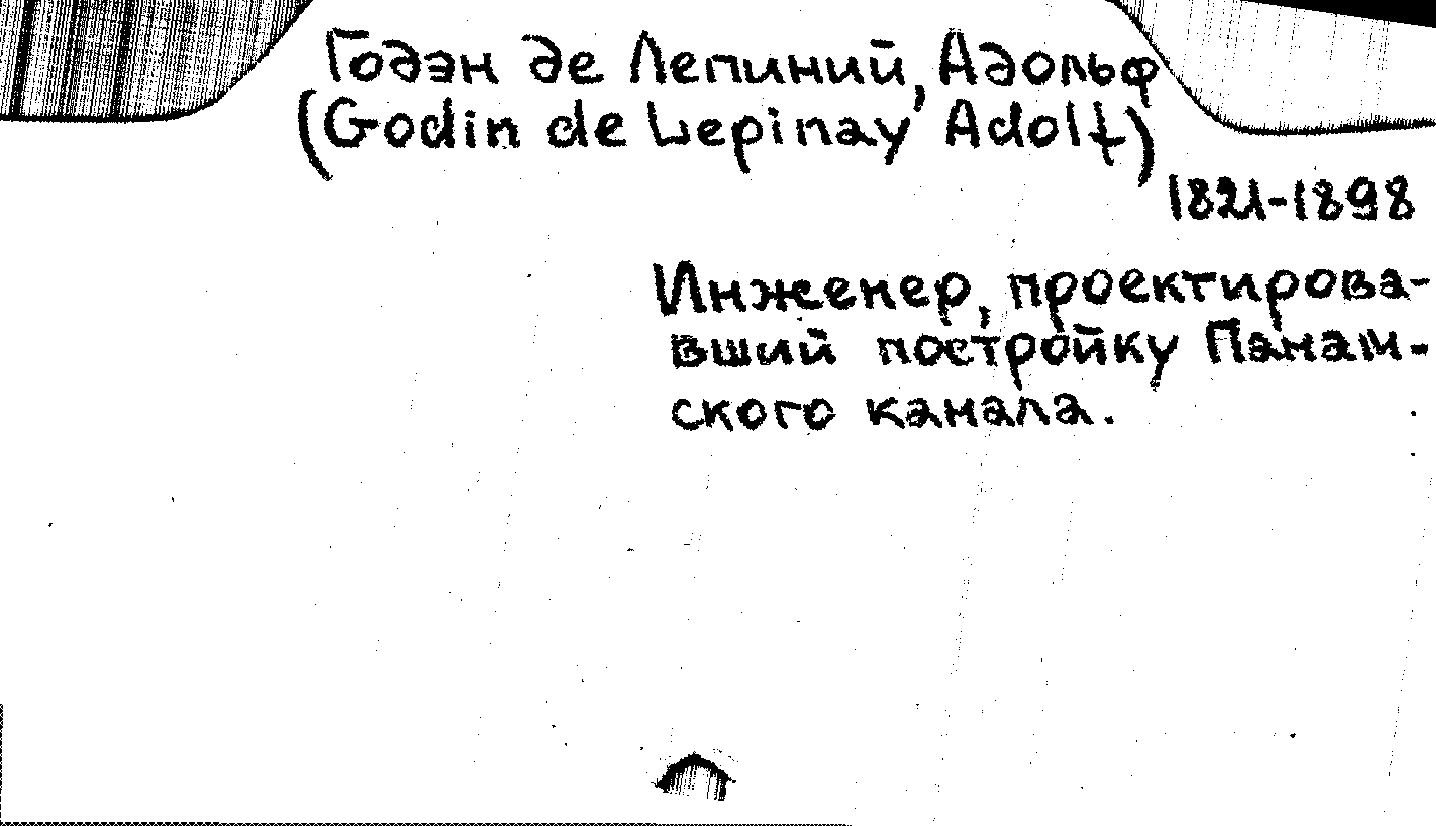 Годэн де Лепиний, Адольф
(Godin de Lepinay Adolf)
1821-1898
Инженер, проектирова-
вший постройку Панам-
ского канала.